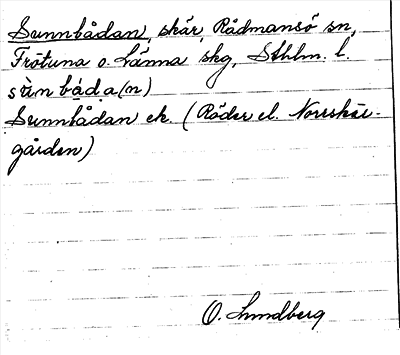 Sunnbådan, skär, Rådmansö sn,
Frötuna o. Länna skg, Sthlm. l.
sùn båd.a(n)
Sunnbådan ek. (Röder el. Norrskär-
gården)
O. Lundberg